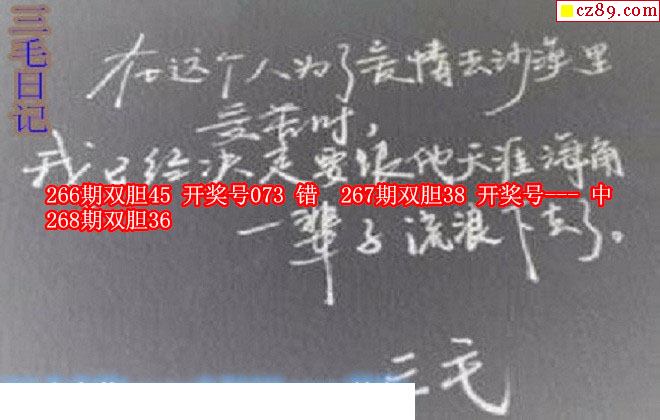 cz89.com
三毛日记
在这个人为了爱情去沙漠里
受苦时,
我已经决定要跟他天涯海角
266期双胆45 开奖号073 错 267期双胆38 开奖号--- 中
268期双胆36
一辈子流浪下去了。
三毛